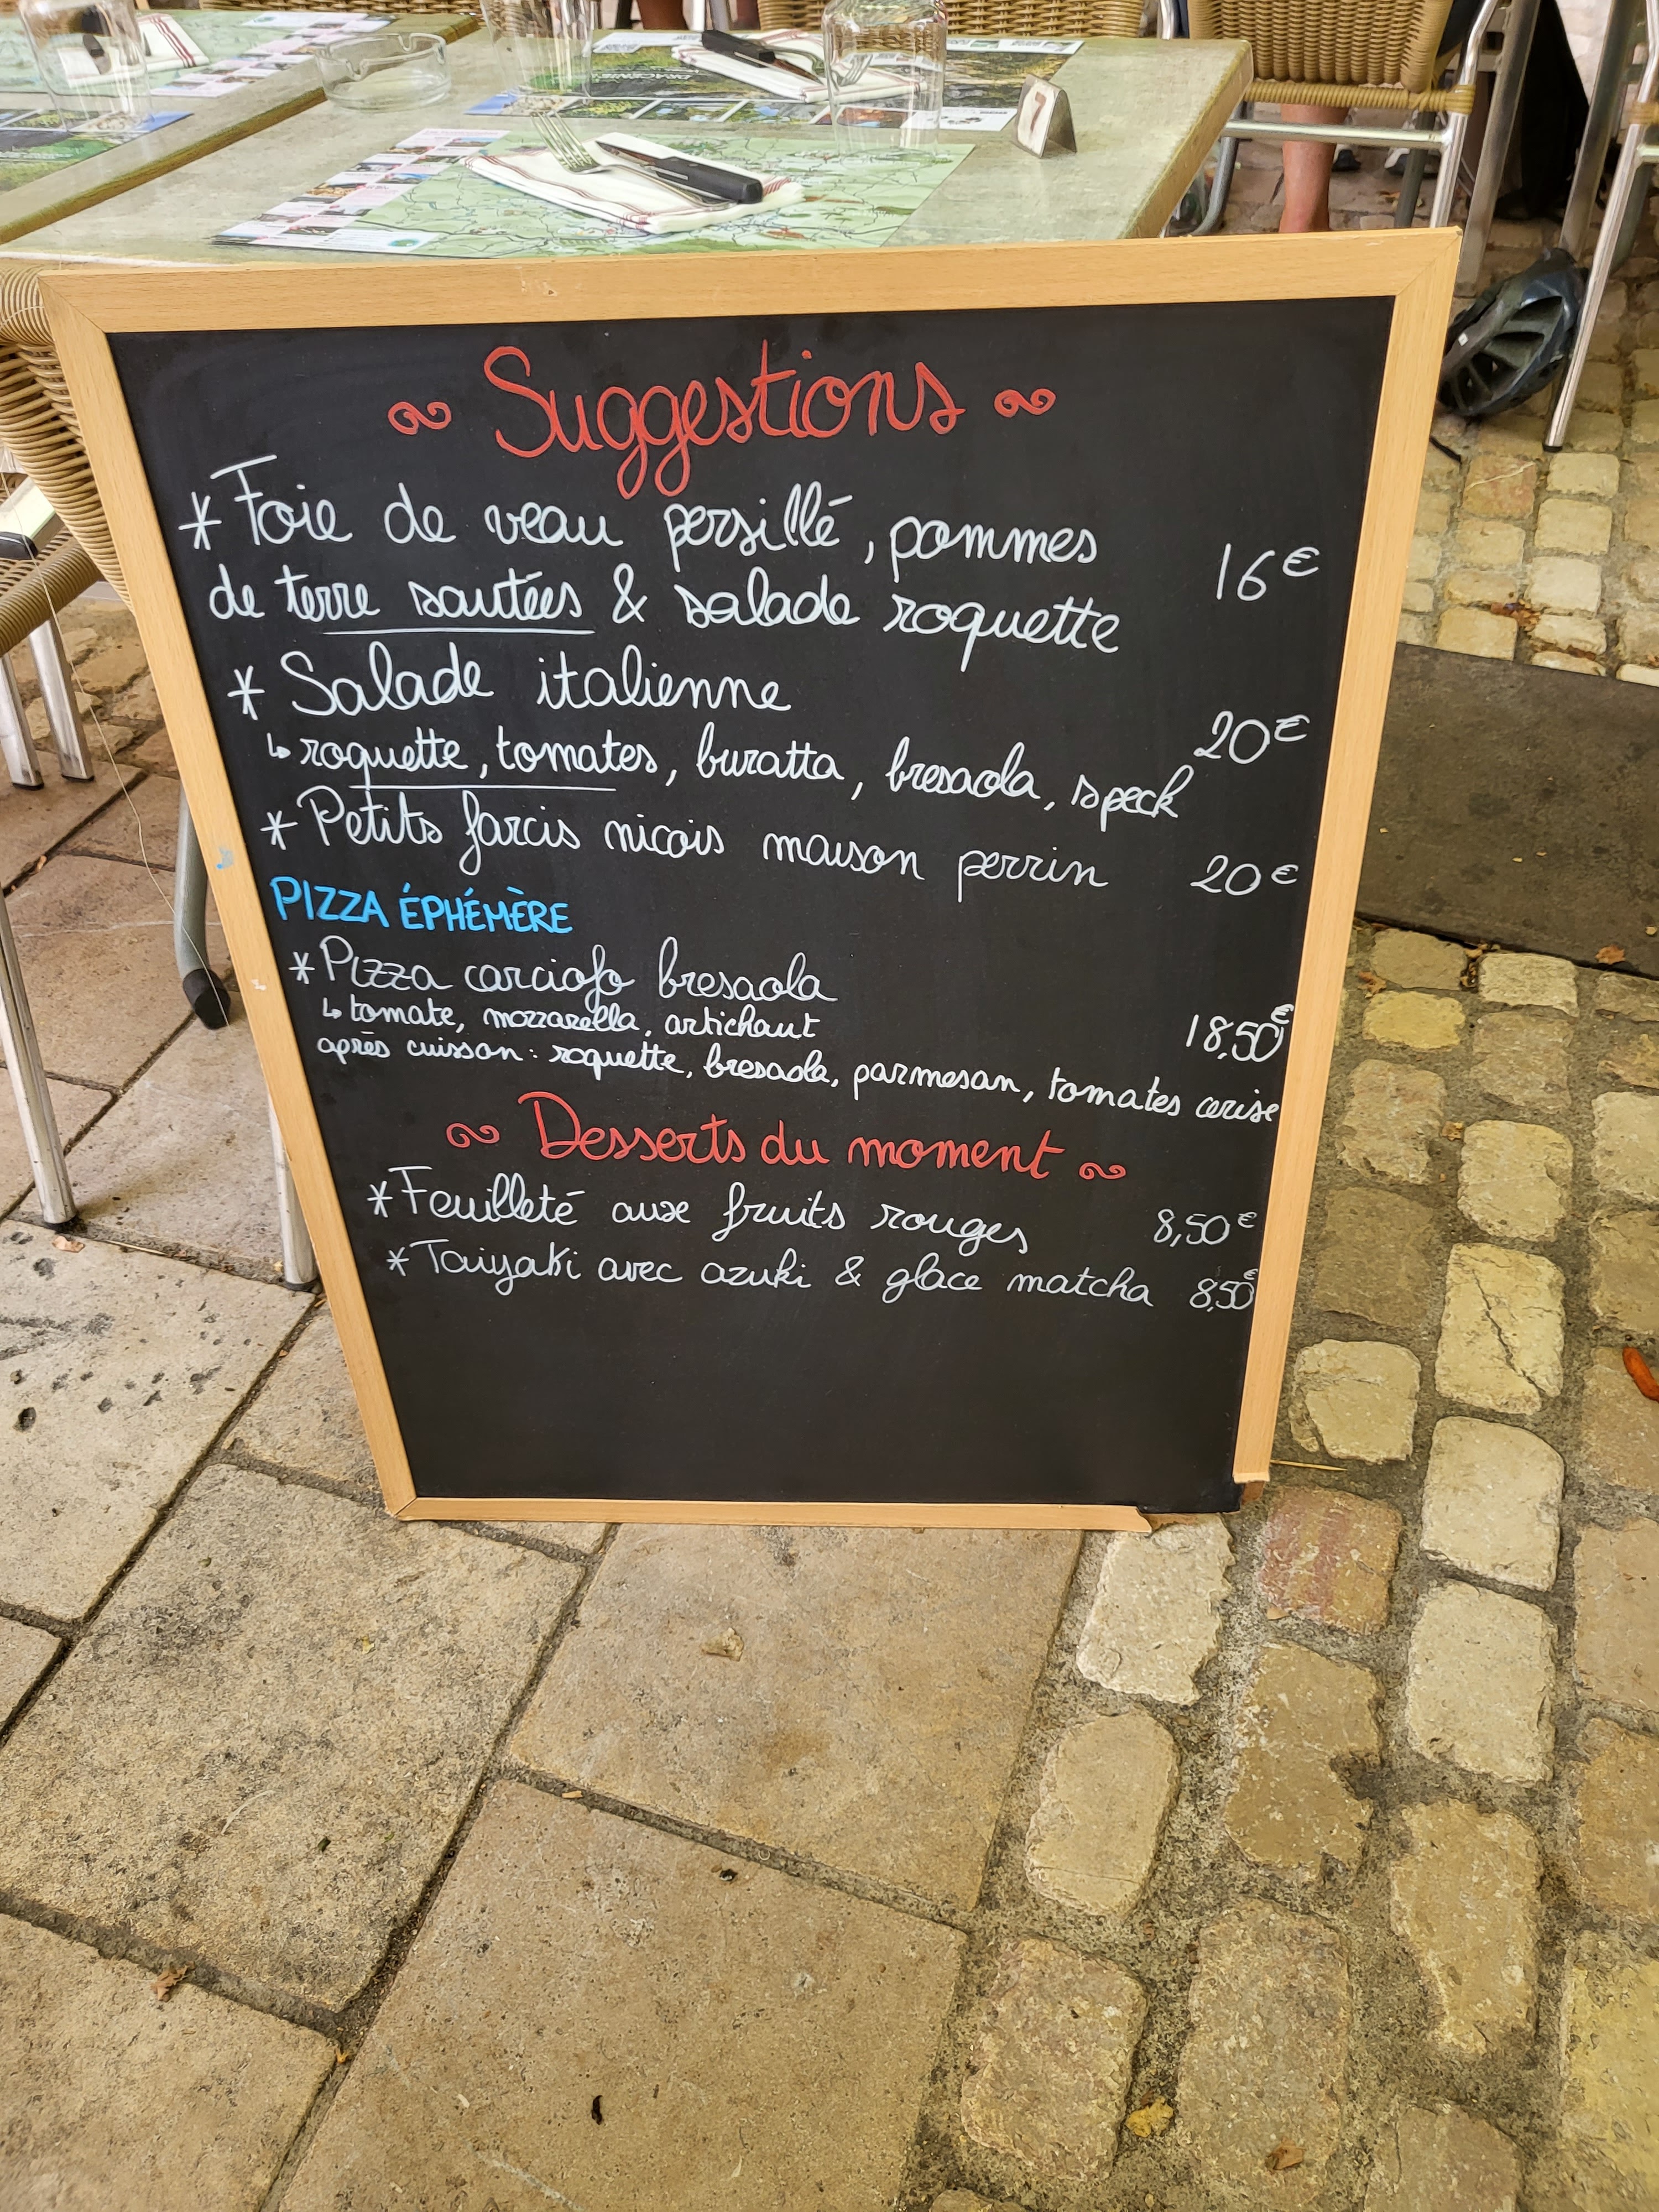 Suggestions
* Foie de veau persillé, pommes
de terre sautées & salade roquette 16€
* Salade italienne
↳ roquette, tomates, buratta, bresaola, speck 20€
* Petits farcis niçois maison perrin 20€
PIZZA ÉPHÉMÈRE
* Pizza carciofo bresaola
↳ tomate, mozzarella, artichaut 18,50€
après cuisson: roquette, bresaola, parmesan, tomates cerise
Desserts du moment
* Feuilleté aux fruits rouges 8,50€
* Taiyaki avec azuki & glace matcha 8,50€